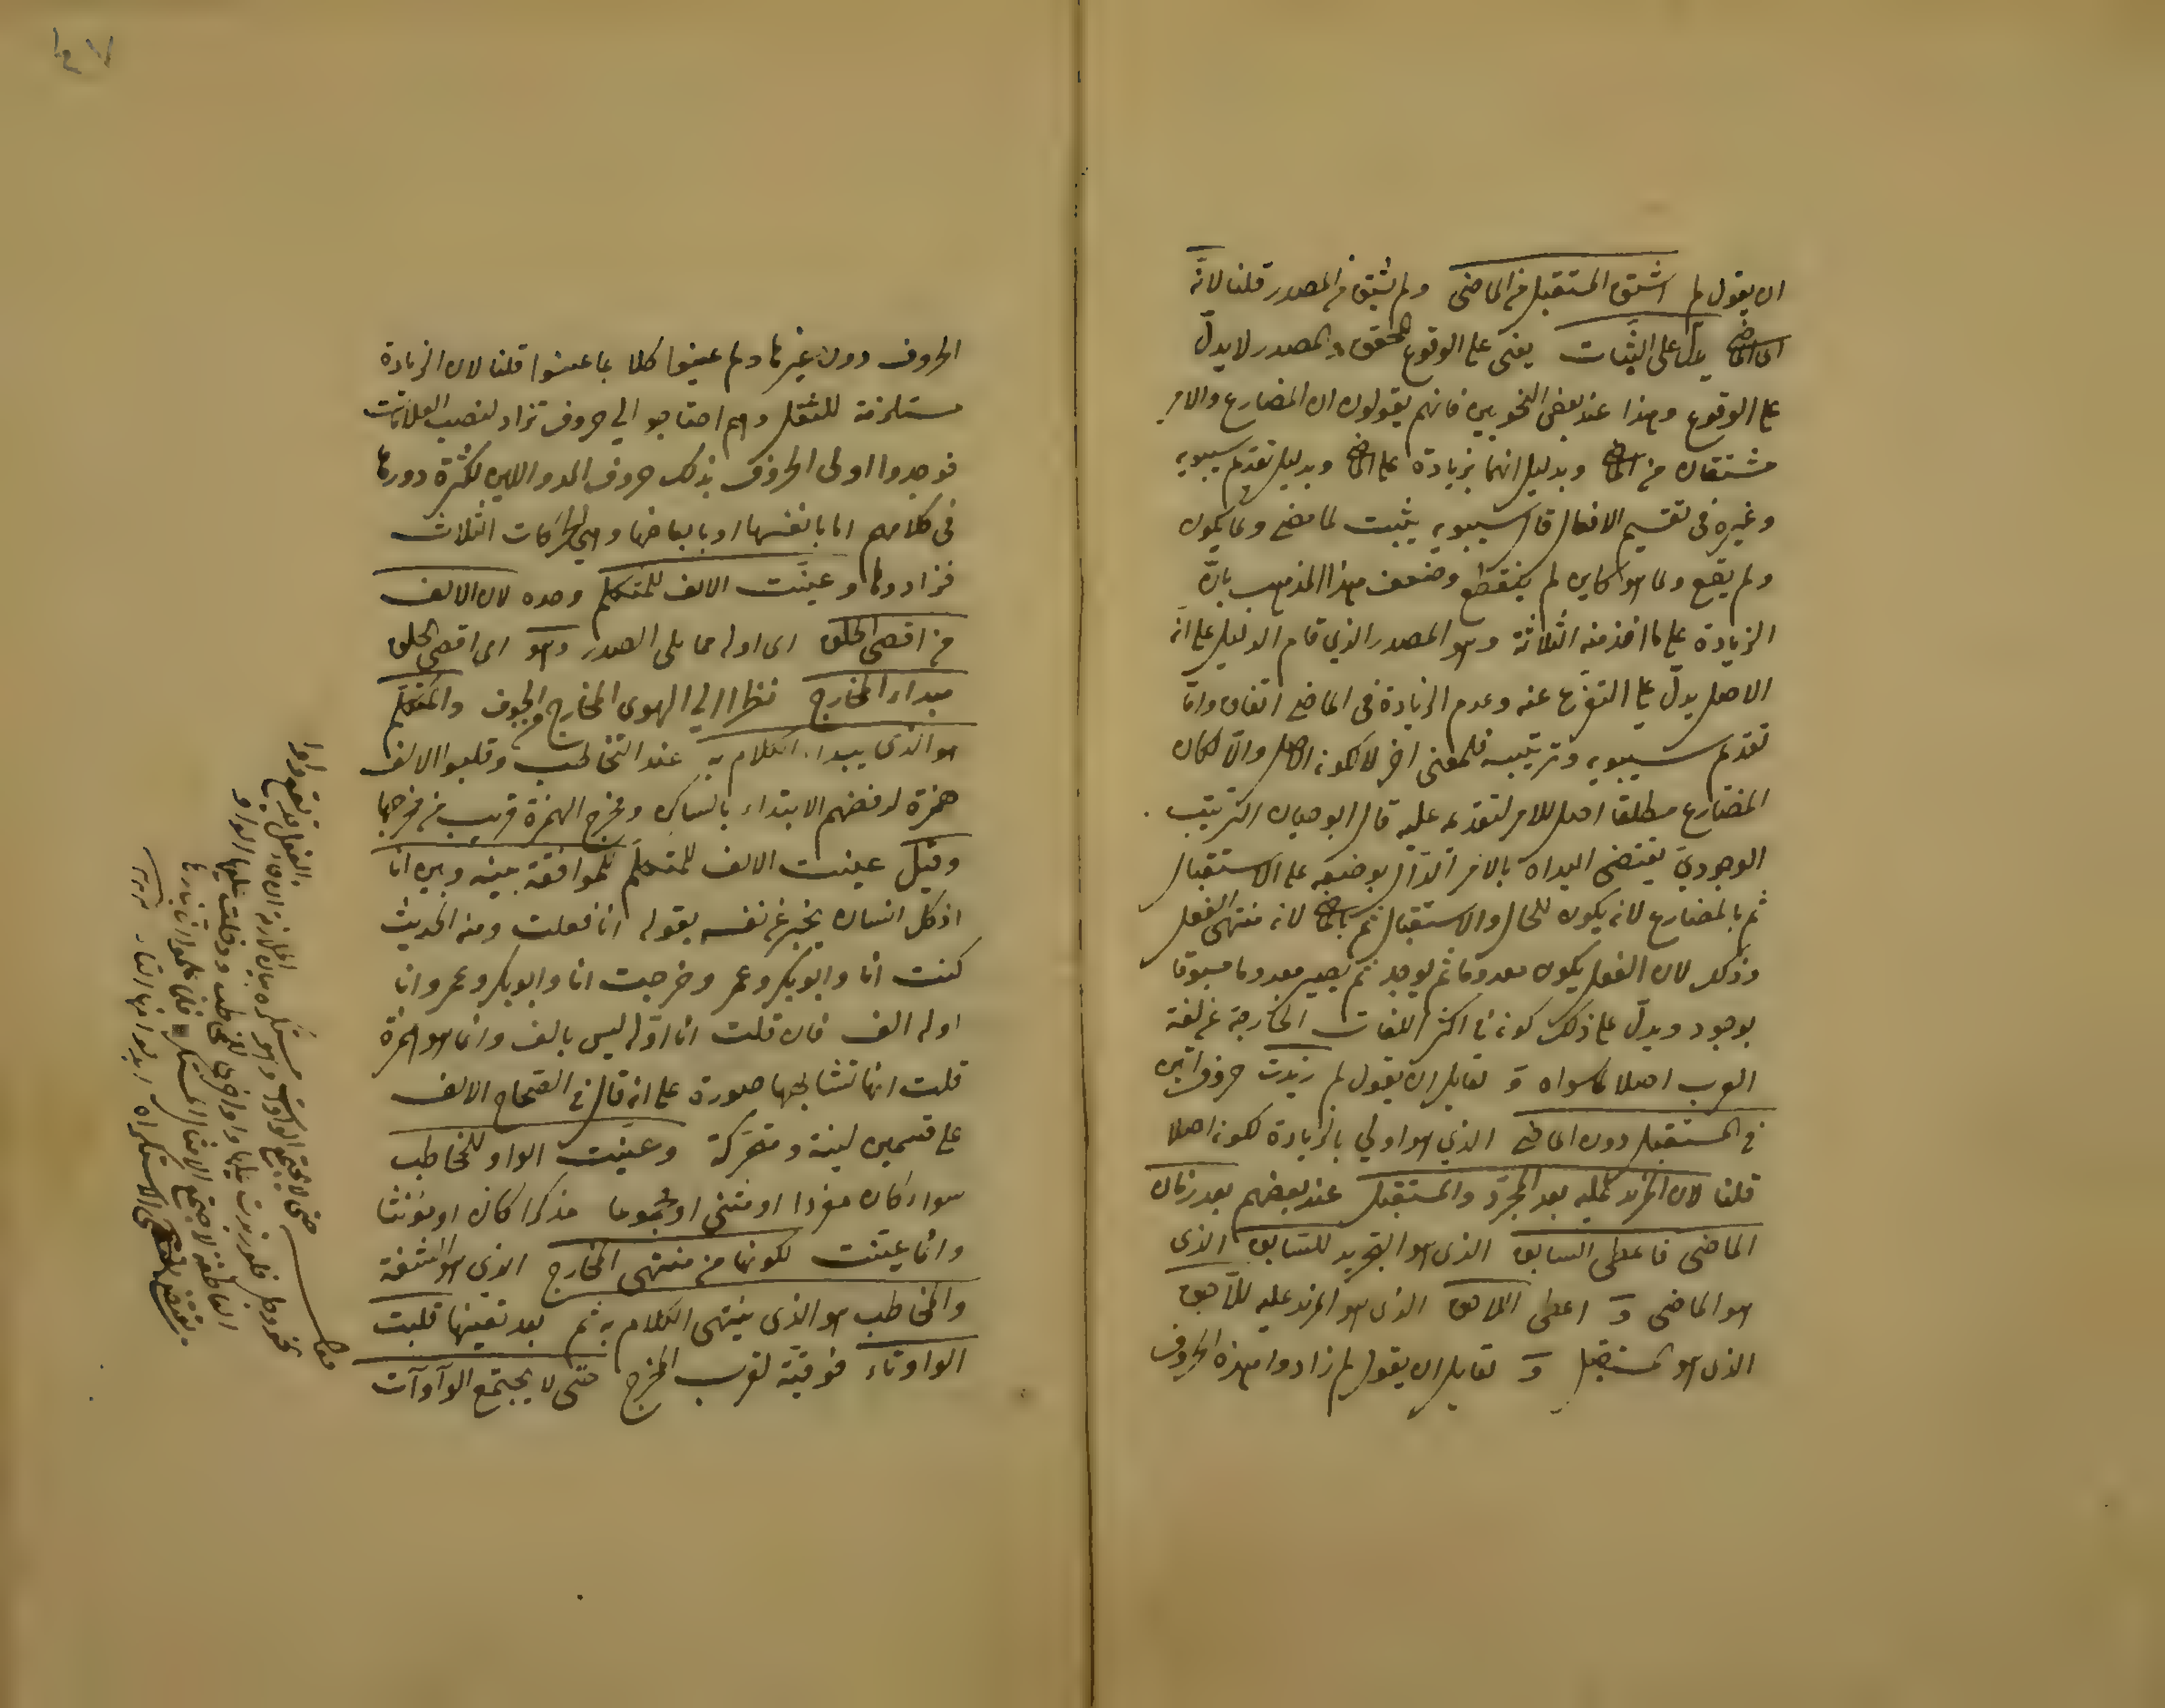 ان يقول لم اشتق المستقبل من الماضى ولم يشتق من المصدر قلنا لانّه
اى الماضى يدل على الثبات يعنى على الوقوع المحقق والمصدر لا يدلّ
على الوقوع وهذا عند بعض النحويين فانهم يقولون ان المضارع والامر
مشتقان من الماضى وبدليل انهما بزيادة على الماضى وبدليل تقديم سيبويه
وغيره فى تقسيم الافعال قال سيبويه يثبت لما مضى ولما يكون
ولم يقع ولما هو كاين لم ينقطع وضعف هذا المذهب بانّ
الزيادة على ما اخذ منه الثلاثة وهو المصدر الذي قام الدليل على انّه
الاصل يدلّ على التفرّع عنه وعدم الزيادة فى الماضى اتفاق وامّا
تقديم سيبويه وترتيبه فلمعنى اخر لا لكونه اصلا والّا لكان
المضارع مطلقا اصل للامر لتقدمه عليه قال ابو حيان الترتيب
الوجوديّ يقتضى البداة بالامر الدّالّ بوضعه على الاستقبال
ثم بالمضارع لانه يكون للحال والاستقبال ثم بالماضى لانه منتهى الفعل
وذلك لان الفعل يكون معدوما ثم يوجد ثم يصير معدوما مسبوقا
بوجود ويدلّ على ذلك كونه فى اكثر اللغات الخارجة عن لغة
العرب اصلا لما سواه وَ لقايل ان يقول لم زيدت حروف اتين
فى المستقبل دون الماضى الذي هو اولي بالزيادة لكونه اصلا
قلنا لان المزيد عليه بعد المجرّد والمستقبل عند بعضهم بعد زمان
الماضى فاعطى السابق الذى هو التجريد للسّابق الذى
هو الماضى وَ اعطى اللاحق الذى هو المزيد عليه للّاحق
الذى هو المستقبل وَ لقايل ان يقول لم زادوا هذه الحروف
الحروف دون غيرها ولم عينوا كلا بما عينوا قلنا لان الزيادة
مستلزمة للثقل وهم احتاجو الي حروف تزاد لنصب العلامات
فوجدوا اولى الحروف بذلك حروف المد واللين لكثرة دورها
فى كلامهم اما بانفسها او بابعاضها وهى الحركات الثلاث
فزادوها وعينّت الالف للمتكلم وحده لان الالف
من اقصى الحلق اى اوله مما يلى الصدر وهو اى اقصى الحلق
مبداء المخارج نظرا الي الهوى المخارج من الجوف والمتكلّم
هو الذى يبداء الكلام به عند التخاطب وقلبوا الالف
همزة لرفضهم الابتداء بالساكن ومخرج الهمزة قريب من مخرجها
وقيل عينت الالف للمتكلّم للموافقة بينه وبين انا
اذ كل انسان يخبر عن نفسه بقوله انا فعلت ومنه الحديث
كنت انا وابو بكر وعمر وخرجت انا وابو بكر وعمر وانا
اوله الف فان قلت انا اوّله ليس بالف وانما هو همزة
قلت انها تشابهها صورة على انه قال فى الصّحاح الالف
على قسمين لينة ومتحركة وعيّنت الواو للمخاطب
سواء كان مفردا او مثنى او مجموعا مذكرا كان او مؤنثا
وانما عيّنت لكونها من منتهى المخارج الذي هو الشفة
والمخاطب هو الذى ينتهى الكلام به ثم بعد تعيينها قلبت
الواو تاء فوقيّة لقرب المخرج حتى لا يجتمع الوآوآت